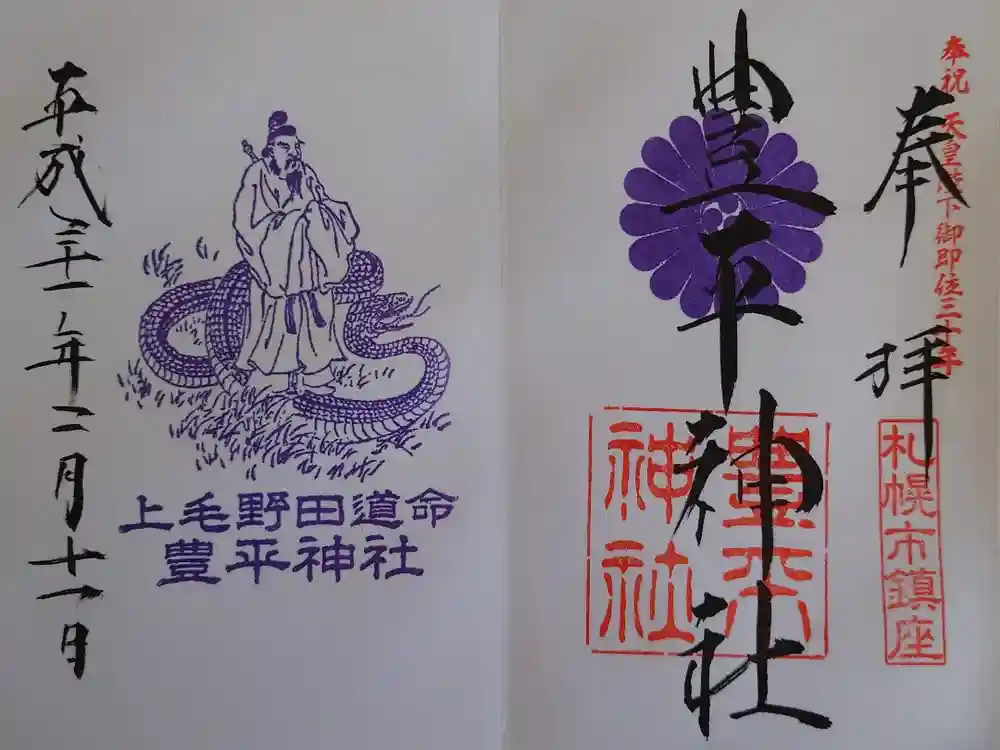 奉祝 天皇陛下御即位三十年
奉拝
札幌市鎮座
豊平神社
豊平神社
上毛野田道命
豊平神社
平成三十一年二月十一日